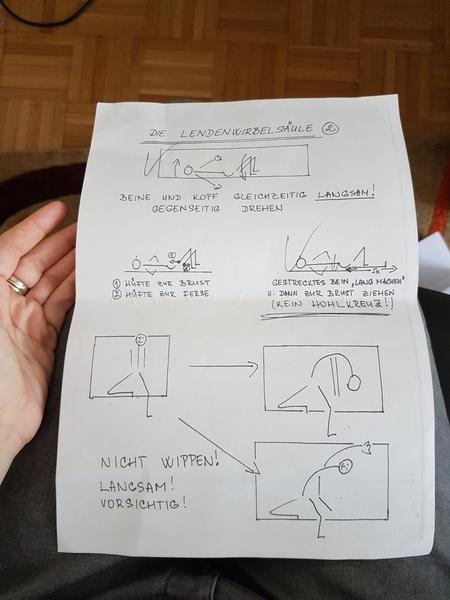 DIE LENDENWIRBELSÄULE ②
BEINE UND KOPF GLEICHZEITIG LANGSAM!
GEGENSEITIG DREHEN
① HÜFTE ZUR BRUST
② HÜFTE ZUR FERSE
GESTRECKTES BEIN „LANG MACHEN"
U. DANN ZUR BRUST ZIEHEN
(KEIN HOHLKREUZ!)
NICHT WIPPEN!
LANGSAM!
VORSICHTIG!